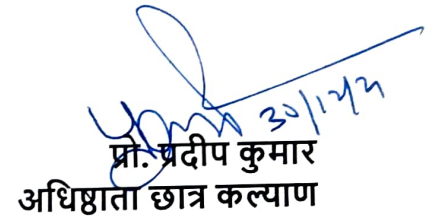 30/12/21
प्रो. प्रदीप कुमार
अधिष्ठाता छात्र कल्याण